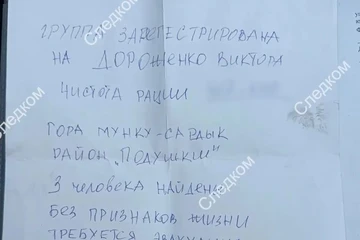 ГРУППА ЗАРЕГЕСТРИРОВАНА
НА ДОРОЖЕНКО ВИКТОРА
ЧИСТОТА РАЦИИ
ГОРА МУНКУ-САРДЫК
РАЙОН "ПОДУШКИ"
3 ЧЕЛОВЕКА НАЙДЕНЫ
БЕЗ ПРИЗНАКОВ ЖИЗНИ
ТРЕБУЕТСЯ
Следком
Следком
Следком
Следком
Следком
Следком